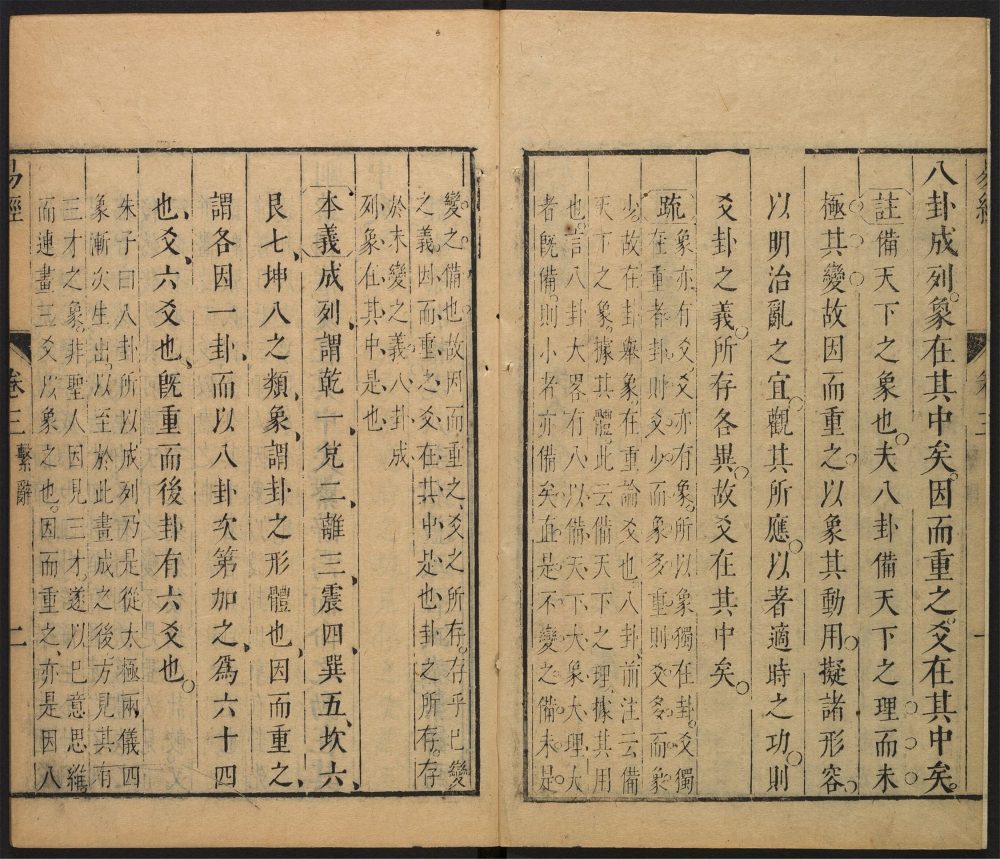 八卦成列。象在其中矣。因而重之。爻在其中矣。
註備天下之象也。夫八卦備天下之理而未
極其變故因而重之以象其動用擬諸形容
以明治亂之宜。觀其所應。以著適時之功。則
爻卦之義。所存各異。故爻在其中矣。
疏象亦有爻爻亦有象。所以象獨在卦。爻獨
在重者卦則爻少而象多重則爻多而象
少。故在卦舉象。在重論爻也。八卦前注云備
天下之象。據其體。此云備天下之理據其用
也。言八卦大畧有八以備天下大象大理大
者既備。則小者亦備矣直是不變之備未是
變之備也故因而重之。爻之所存。存乎已變
之義。因而重之。爻在其中是也卦之所存。存
於未變之義八卦成
列象在其中是也
本義成列謂乾一、兌二、離三、震四、巽五、坎六、
艮七、坤八之類象、謂卦之形體也、因而重之、
謂各因一卦而以八卦次第加之、爲六十四
也、爻、六爻也、旣重而後卦有六爻也。
朱子曰八卦所以成列乃是從太極兩儀四
象漸次生出。以至於此畫成之後方見其有
三才之象。非聖人因見三才。遂以己意思維
而連畫三爻以象之也。因而重之、亦是因八
易經
卷三
繫辭
二